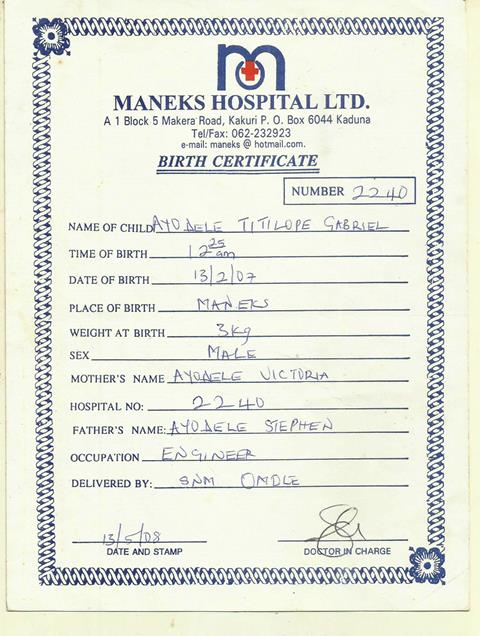 m
MANEKS HOSPITAL LTD.
A 1 Block 5 Makera Road, Kakuri P. O. Box 6044 Kaduna
Tel/Fax: 062-232923
e-mail: maneks @ hotmail.com.
BIRTH CERTIFICATE
NUMBER 2240
NAME OF CHILD AYODELE TITILOPE GABRIEL
TIME OF BIRTH 12 25 am
DATE OF BIRTH 13/2/07
PLACE OF BIRTH MANEKS
WEIGHT AT BIRTH 3kg
SEX MALE
MOTHER'S NAME AYODELE VICTORIA
HOSPITAL NO: 2240
FATHER'S NAME: AYODELE STEPHEN
OCCUPATION ENGINEER
DELIVERED BY: SNM
13/5/08
DATE AND STAMP DOCTOR IN CHARGE